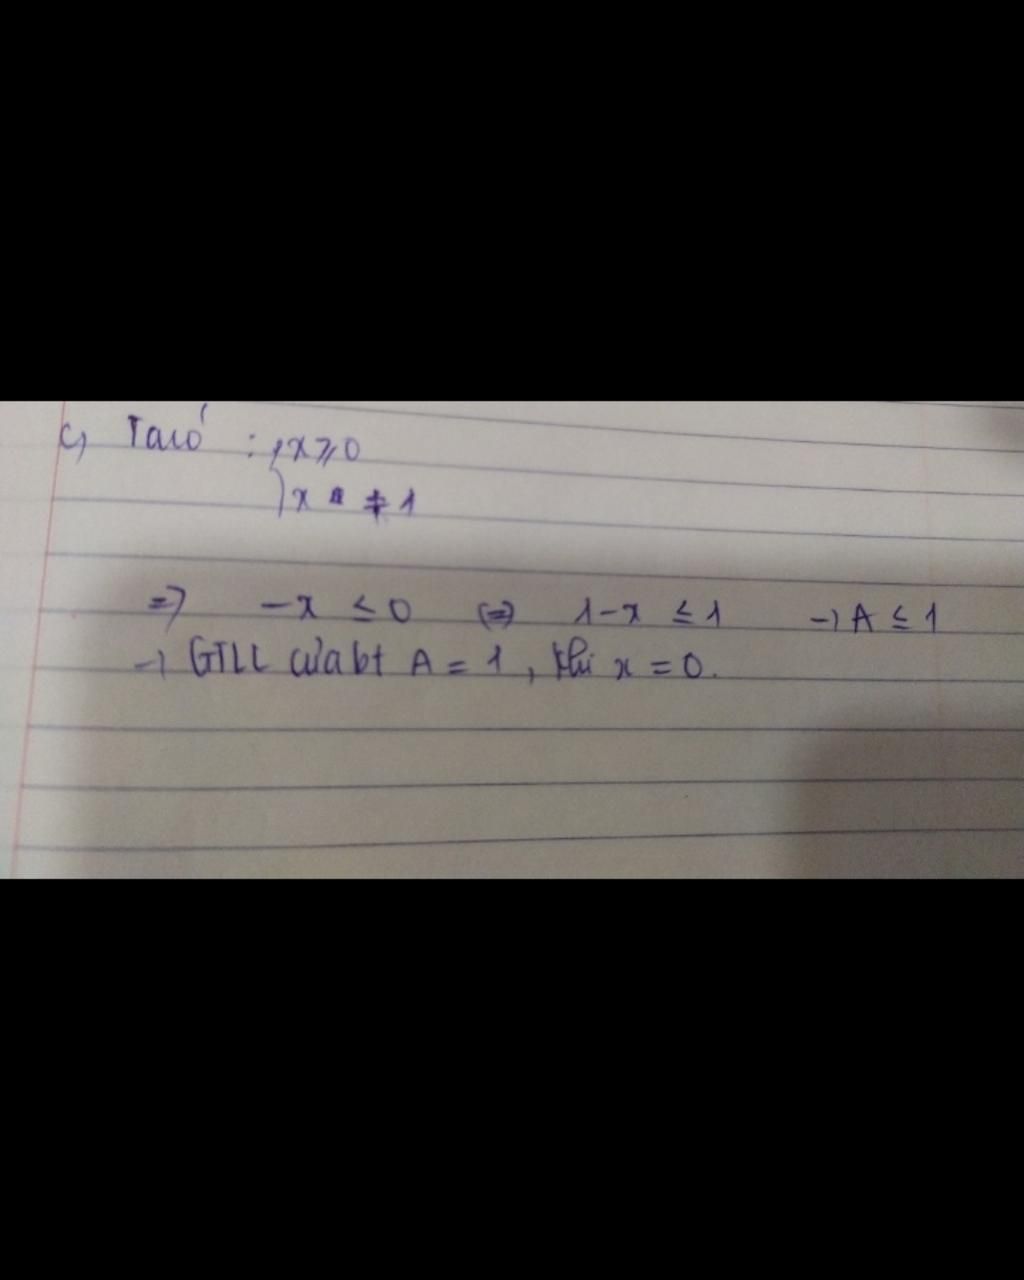 c, Ta có : { x ≥ 0
x ≠ 1
=> -x ≤ 0 <=> 1-x ≤ 1 -> A ≤ 1
-> GTLL của bt A = 1, khi x = 0.